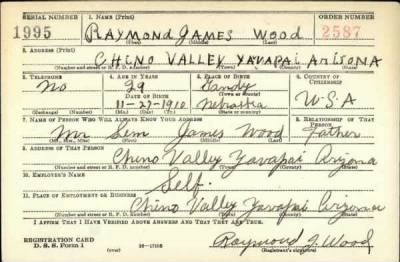 SERIAL NUMBER 1. NAME (Print) ORDER NUMBER
1995 RAYMOND JAMES WOOD 2587
(First) (Middle) (Last)
2. ADDRESS (Print)
CHINO VALLEY YAVAPAI ARIZONA
(Number and street or R. F. D. number) (Town) (County) (State)
3. TELEPHONE 4. AGE IN YEARS 5. PLACE OF BIRTH 6. COUNTRY OF CITIZENSHIP
No 29 Gandy
DATE OF BIRTH (Town or county)
11-27-1910 Nebraska U.S.A
(Exchange) (Number) (Mo.) (Day) (Yr.) (State or country)
7. NAME OF PERSON WHO WILL ALWAYS KNOW YOUR ADDRESS 8. RELATIONSHIP OF THAT PERSON
Mr James Wood Father
(Mr., Mrs., Miss) (First) (Middle) (Last)
9. ADDRESS OF THAT PERSON
Chino Valley Yavapai Arizona
(Number and street or R. F. D. number) (Town) (County) (State)
10. EMPLOYER'S NAME
Self.
11. PLACE OF EMPLOYMENT OR BUSINESS
Chino Valley Yavapai Arizona
(Number and street or R. F. D. number) (Town) (County) (State)
I AFFIRM THAT I HAVE VERIFIED ABOVE ANSWERS AND THAT THEY ARE TRUE.
REGISTRATION CARD
D. S. S. Form 1 16-17105 Raymond J. Wood
(Registrant's signature)